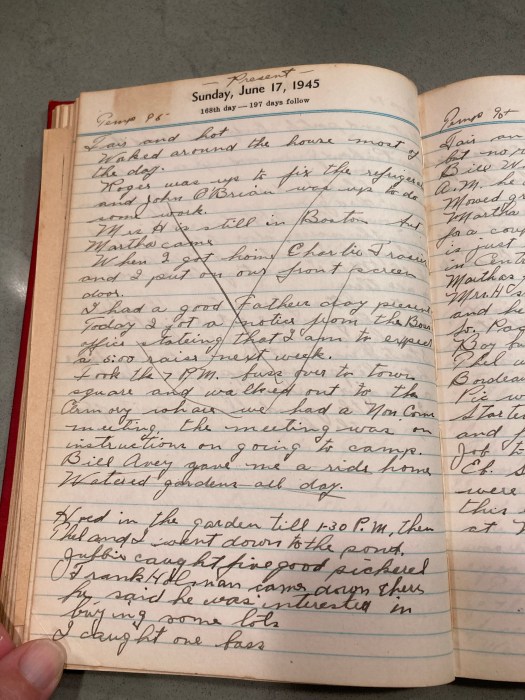 — Present —
Sunday, June 17, 1945
168th day—197 days follow
Temp 85
Fair and hot
Waked around the house most of
the day.
Roger was up to fix the refriger
and John O'Brian was up to do
some work.
Mrs H is still in Boston but
Martha came
When I got home Charlie Fraser
and I put on our front screen
door.
I had a good Fathers day present
Today I got a notice from the Boston
office stateing that I am to expect
a 5.00 raise next week.
Took the 7 P.M. buss over to town
square and walked out to the
Armory where we had a Non Com
meeting, the meeting was on
instructions on going to camp.
Bill Avey gave me a ride home
Watered gardens all day.
Hoed in the garden till 1-30 P.M, then
Phil and I went down to the pond,
caught five good pickerel
Frank Holman came down there
he said he was interested in
buying some lots
I caught one bass
Temp 90
Fair an
but no
Bill W
A.M. he
Mowed gr
Martha
for a coup
is just
in Cent
Marthas
Mrs. H
and he
to, Pa
Boy
Phil w
Bordea
Pie w
Starte
and
Job t
Eb. s
were
this
at